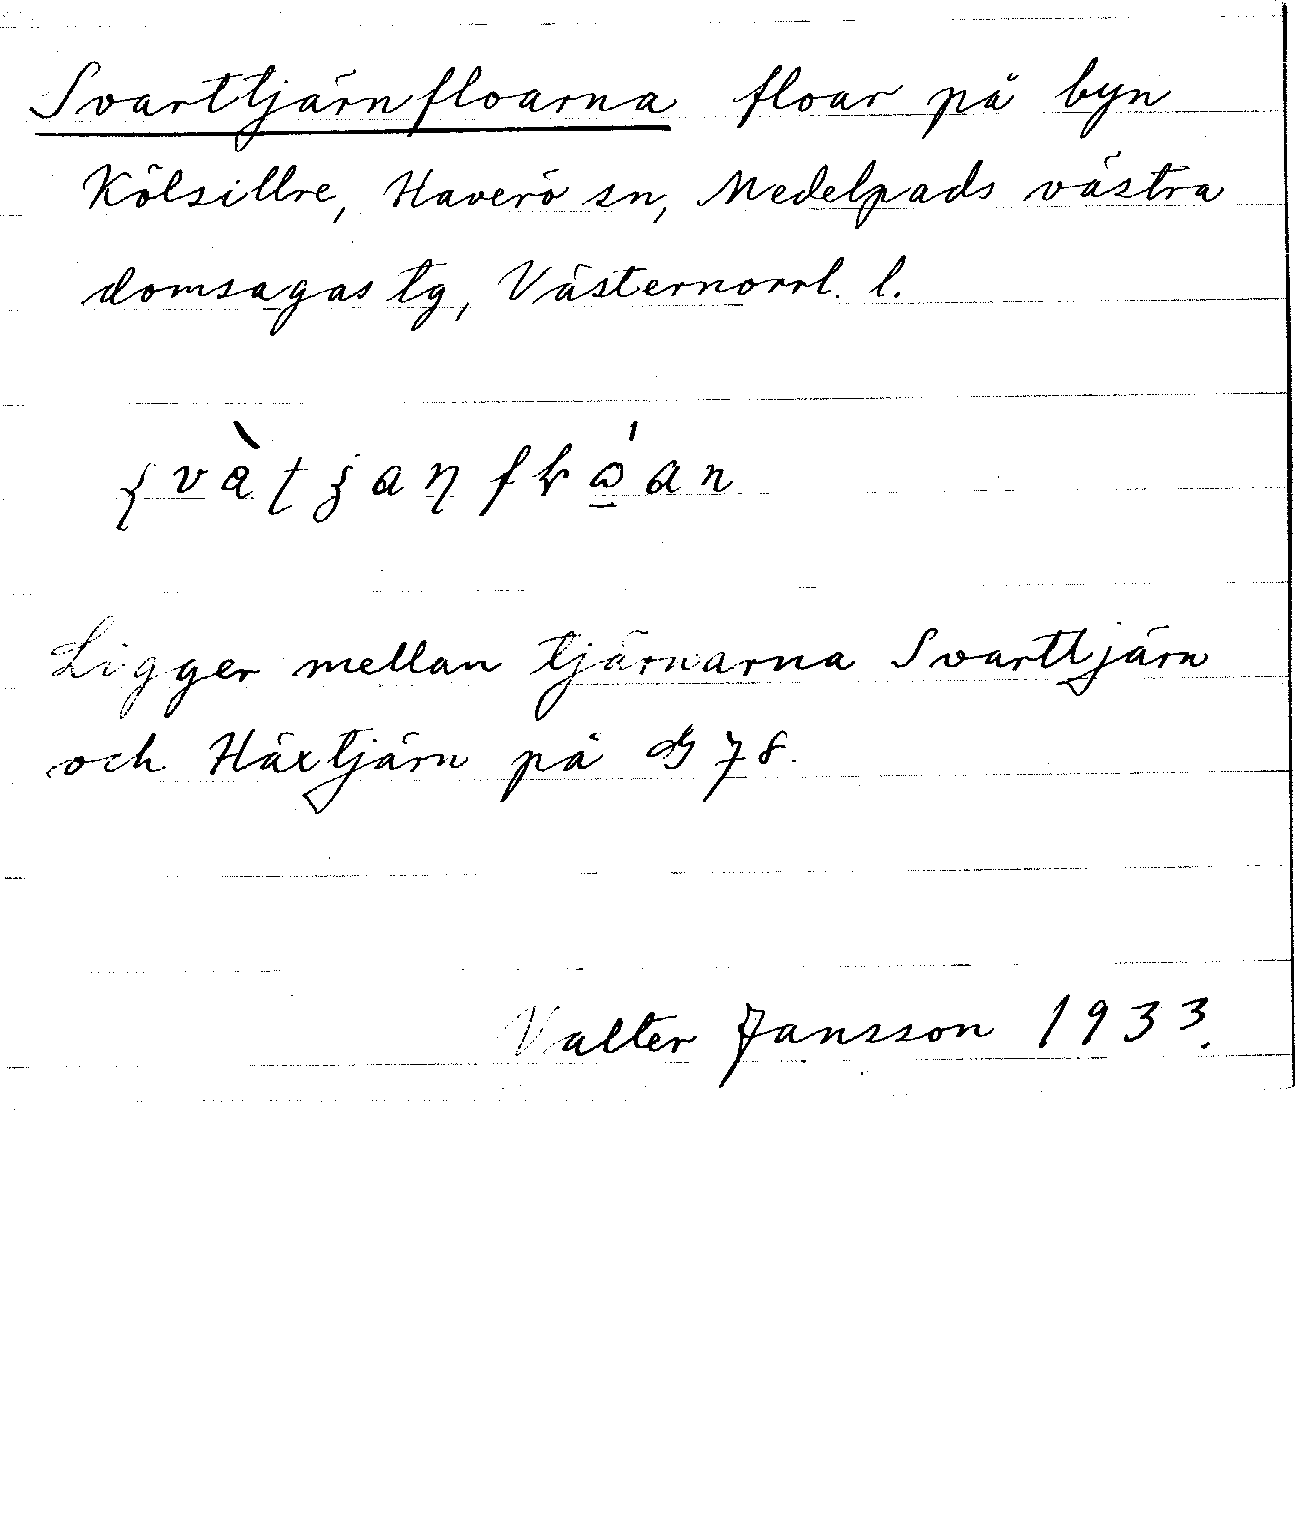 Svarttjärnfloarna floar på byn
Kölsillre, Haverö sn, Medelpads västra
domsagas tg, Västernorrl. l.
Ligger mellan tjärnarna Svarttjärn
och Häxtjärn på 78.
Valter Jansson 1933.